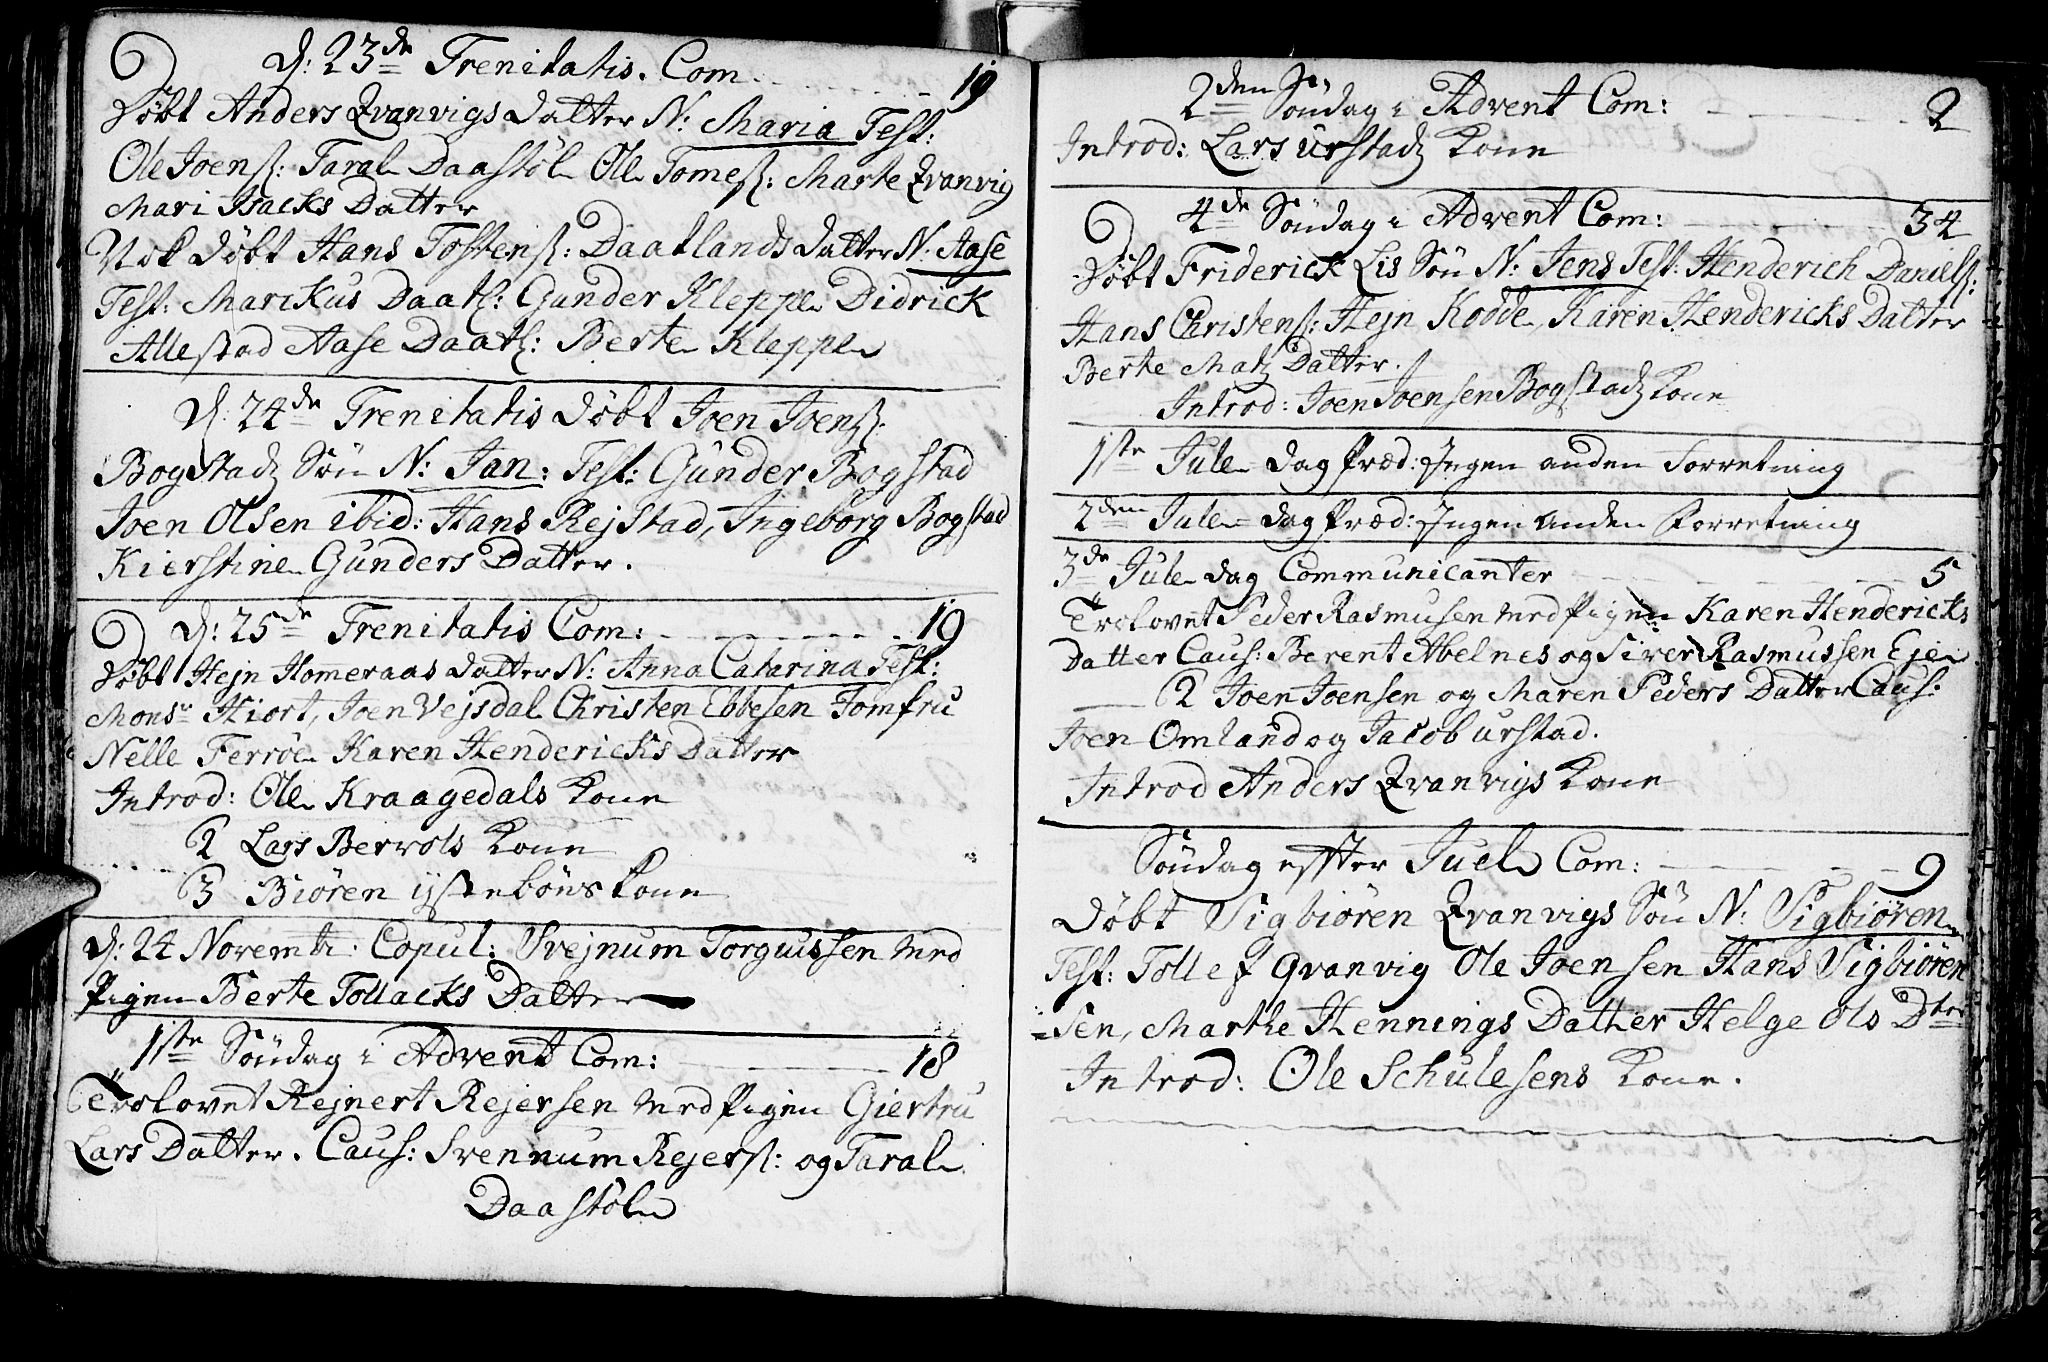 D: 23de Trenitatis. Com - - - - - 19
Døbt Anders Qvanvigs Datter N: Maria Test:
Ole Joenß: Taral Daastøl Ole Tomeß: Marte Qvanvig
Mari Isacks Datter
Nok Døbt Hans Tostenß: Daatlands Datter N: Aase
Test: Marckus Daatl: Gunder Kleppe Didrick
Allestad Aase Daatl: Berte Kleppe
D: 24de Trenitatis Døbt Joen Joenß:
Bogstadz Søn N: Jan: Test: Gunder Bogstad
Joen Olsen ibid: Hans Rejstad, Ingeborg Bogstad
Kierstine Gunders Datter.
D: 25de Trenitatis Com: - - - - - 19
Døbt Hejn Homeraas Datter N: Anna Catarina Test:
Monsr Hiort, Joen Vejsdal Christen Ebbesen Jomfru
Nelle Ferrøe Karen Hendericks Datter
Introd: Ole Kraagedals Kone
2 Lars Bervols Kone
3 Biøren ijstebøns Kone
D: 24 Novembr: Copul: Svejnum Torgiussen med
Pigen Berte Tollacks Datter
1ste Søndag i Advent Com: - - - - - 18
Trolovet Rejnert Rejersen med Pigen Giertru
Lars Datter. Caus: Svennum Rejerß: og Taral
Daastøl
2den Søndag i Advent Com: - - - - - 2
Introd: Lars Urstadz Kone
4de Søndag i Advent Com: - - - - - 34
Døbt Friderick Lis Søn N: Jens Test: Henderich Danielß:
Hans Christenß: Hejn Kodde, Karen Hendericks Datter
Berte Matz Datter.
Introd: Joen Joensen Bogstadz Kone
1ste Jule dag Præd: Ingen anden Forretning
2den Jule dag Præd: Ingen anden Forretning
3de Jule dag Communicanter - - - - - 5
Trolovet Peder Rasmusen med Pigen Karen Hendericks
Datter Caus: Berent Abelnes og Siver Rasmussen Eje
2 Joen Joensen og Maren Peders Datter Caus:
Joen Omland og Jacob urstad.
Introd Anders Qvanvigs Kone
Søndag effter Juel Com: - - - - - 9
Døbt Sigbiøren Qvanvigs Søn N: Sigbiøren
Test: Tollef Qvanvig Ole Joensen Hans Sigbiøren
=sen, Marthe Hennings Datter Helge Ols Dter
Introd: Ole Schulesens Kone.